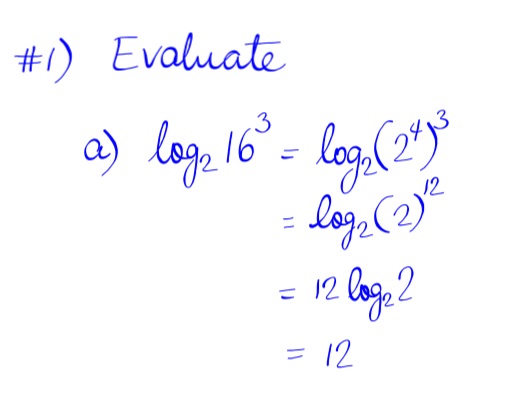 #1) Evaluate
a) log₂ 16³ = log₂(2⁴)³
= log₂(2)¹²
= 12 log₂ 2
= 12